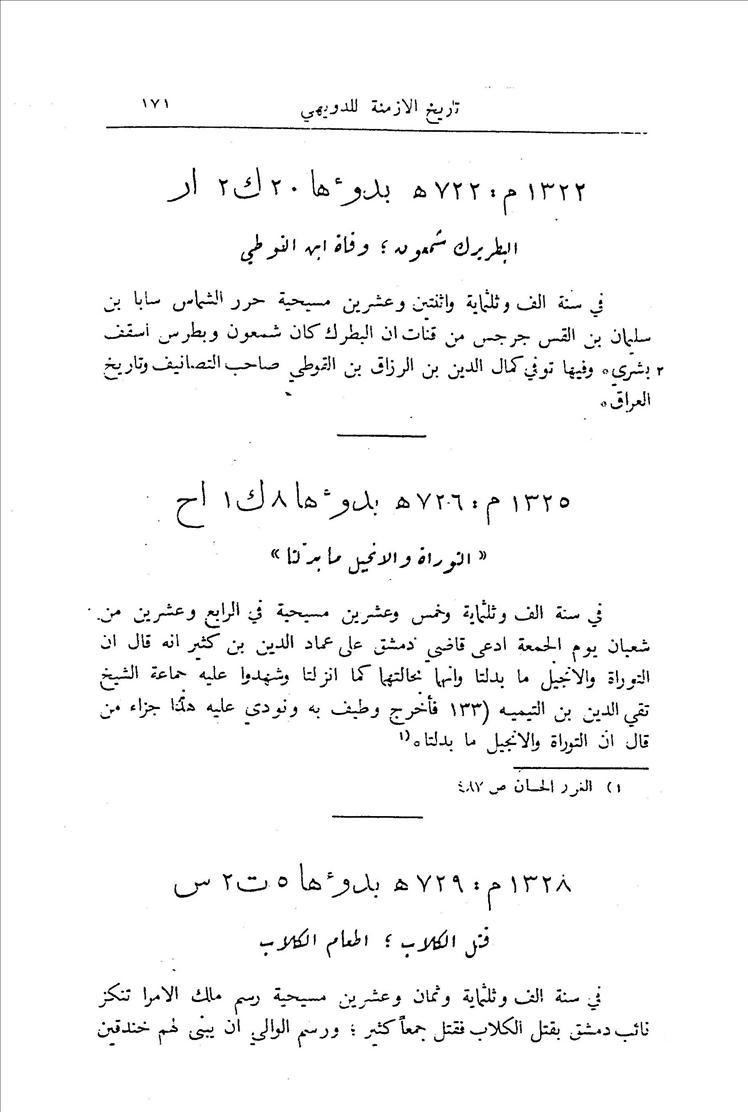 تاريخ الازمنة للدويهي ١٧١
١٣٢٢ م : ٧٢٢ ه بدوءها ٢٠ ك ٢ ار
البطريرك شمعون ؛ وفاة ابن الفوطي
في سنة الف وثلثماية واثنتين وعشرين مسيحية حرر الشماس سابا بن
سليمان بن القس جرجس من قنات ان البطرك كان شمعون وبطرس أسقف
٢ بشري٠ وفيها توفي كمال الدين بن الرزاق بن القوطي صاحب التصانيف وتاريخ
العراق٠
١٣٢٥ م : ٧٢٦ ه بدوءها ٨ ك ١ اح
« التوراة والانجيل ما بدلتا »
في سنة الف وثلثماية وخمس وعشرين مسيحية في الرابع وعشرين من
شعبان يوم الجمعة ادعى قاضي دمشق على عماد الدين بن كثير انه قال ان
التوراة والانجيل ما بدلتا وانها بحالتها كما انزلتا وشهدوا عليه جماعة الشيخ
تقي الدين بن التيميه (١٣٣ فأخرج وطيف به ونودي عليه هذا جزاء من
قال ان التوراة والانجيل ما بدلتا٠(١
١) الغرر الحسان ص ٤٨٧
١٣٢٨ م : ٧٢٩ ه بدوءها ٥ ت ٢ س
قتل الكلاب ؛ اطعام الكلاب
في سنة الف وثلثماية وثمان وعشرين مسيحية رسم ملك الامرا تنكز
نائب دمشق بقتل الكلاب فقتل جمعاً كثير ؛ ورسم الوالي ان يبنى لهم خندقين